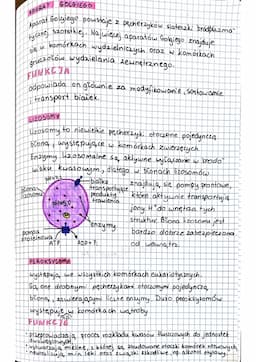 APARAT GOLGIEGO
Aparat Golgiego powstaje z pęcherzyków siateczki śródplazma-
tycznej szorstkiej. Najwięcej aparatów Golgiego znajduje
się w komórkach wydzielniczych oraz w komórkach
gruczołów wydzielania zewnętrznego.
FUNKCJA
odpowiada on głównie za modyfikowanie, sortowanie
i transport białek.
LIZOSOMY
Lizosomy to niewielkie pęcherzyki otoczone pojedynczą
błoną, występujące w komórkach zwierzęcych.
Enzymy lizosomalne są aktywne wyłącznie w środo-
wisku kwasowym, dlatego w błonach lizosomów
znajdują się pompy protonowe,
które aktywnie transportują
jony H⁺ do wnętrza tych
struktur. Błona lizosomu jest
bardzo dobrze zabezpieczona
od wewnątrz.
błona
lizosomu
białka
transportujące
produkty
trawienia
enzymy
pompa
protonowa
ATP
ADP + P
PEROKSYSOMY
występują we wszystkich komórkach eukariotycznych.
Są one drobnymi pęcherzykami otoczonymi pojedynczą
błoną, zawierającymi liczne enzymy. Dużo peroksysomów
występuje w komórkach wątroby
FUNKCJE
przeprowadzają proces rozkładu kwasów tłuszczowych do jednostek
dwuwęglowych,
wytwarzają mielinę, z której są zbudowane otoczki komórek nerwowych,
neutralizują m.in. leki oraz związki szkodliwe, np. alkohol etylowy.